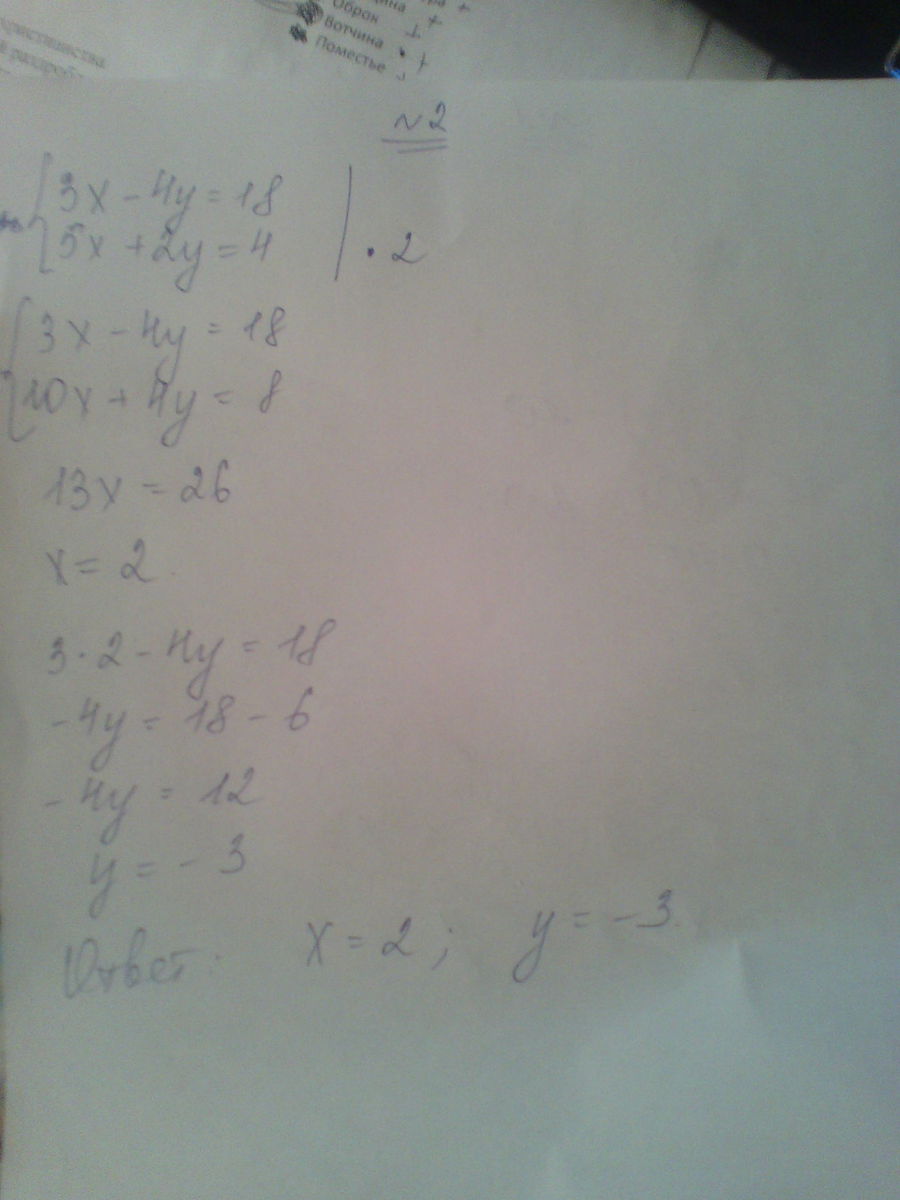 Оброк
Вотчина
Поместье
N2
3x - 4y = 18
5x + 2y = 4 | · 2
3x - 4y = 18
10x + 4y = 8
13x = 26
x = 2
3 · 2 - 4y = 18
- 4y = 18 - 6
- 4y = 12
y = - 3
Ответ: x = 2; y = -3.